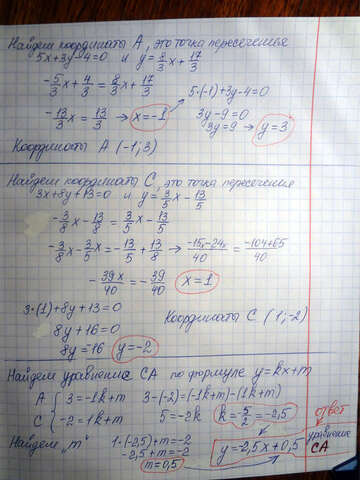 Найдем координаты A, это точка пересечения
5x+3y-4=0 и y=8/3x+17/3
-5/3x+4/3=8/3x+17/3
-13/3x=13/3 → x=-1
5·(-1)+3y-4=0
3y-9=0
3y=9 → y=3
Координаты A (-1;3)
Найдем координаты C, это точка пересечения
3x+8y+13=0 и y=3/5x-13/5
-3/8x-13/8=3/5x-13/5
-3/8x-3/5x=-13/5+13/8 → -15x-24x/40=-104+65/40
-39x/40=-39/40 x=1
3·(1)+8y+13=0
8y+16=0
8y=16 y=-2
Координаты C (1;-2)
Найдем уравнение CA по формуле y=kx+m
A { 3=-1k+m 3-(-2)=(-1k+m)-(1k+m)
C { -2=1k+m 5=-2k k=-5/2=-2,5
ответ
Найдем "m" 1·(-2,5)+m=-2
-2,5+m=-2
m=0,5
y=-2,5x+0,5
уравнение
CA